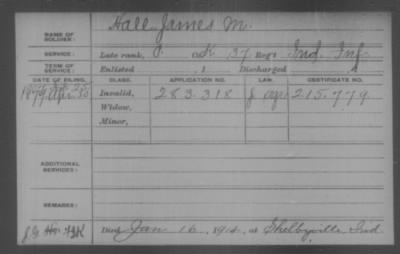 NAME OF SOLDIER: Hall James M.
SERVICE: Late rank, P. Co. K, 37 Reg't Ind. Inf.
TERM OF SERVICE: Enlisted , 1 , Discharged , 1
DATE OF FILING. CLASS. APPLICATION NO. LAW. CERTIFICATE NO.
1879 Invalid, 283.318 215.779
Widow,
Minor,
ADDITIONAL SERVICES:
REMARKS:
Died Jan 16, 1914, at Shelbyville Ind.